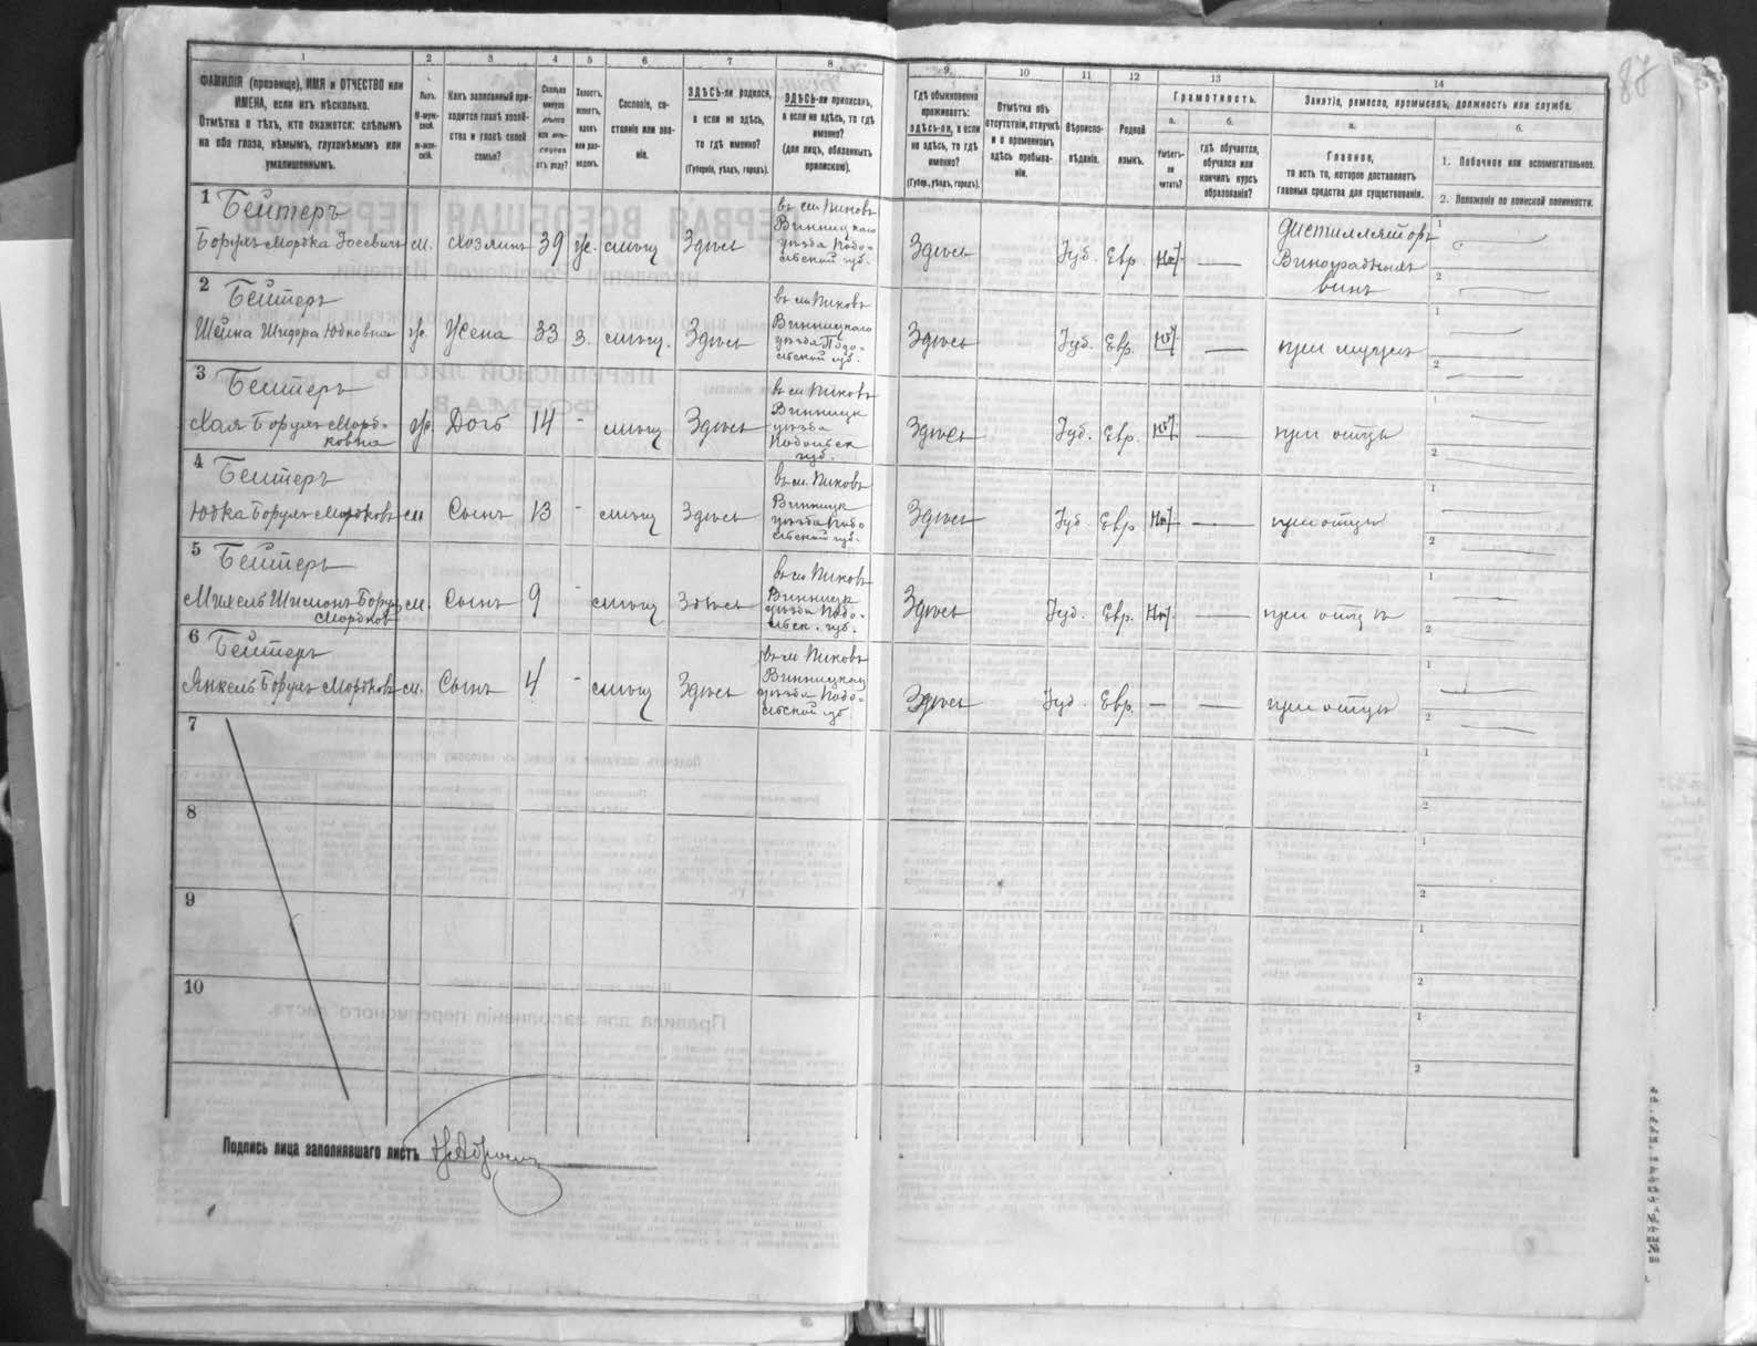 87
1 2 3 4 5 6 7 8 9 10 11 12 13 14
ФАМИЛІЯ (прозвище), ИМЯ и ОТЧЕСТВО или
ИМЕНА, если ихъ нѣсколько.
Отмѣтка о тѣхъ, кто окажется: слѣпымъ
на оба глаза, нѣмымъ, глухонѣмымъ или
умалишеннымъ.
Полъ.
М-муж-
ской.
Ж-жен-
скій.
Какъ записанный при-
ходится главѣ хозяй-
ства и главѣ своей
семьи?
Сколько
минуло
лѣтъ
или мѣ-
сяцевъ
отъ роду?
Холостъ,
женатъ,
вдовъ
или раз-
веденъ.
Сословіе, со-
стояніе или зва-
ніе.
ЗДѢСЬ-ли родился,
а если не здѣсь,
то гдѣ именно?
(Губернія, уѣздъ, городъ).
ЗДѢСЬ-ли приписанъ,
а если не здѣсь, то гдѣ
именно?
(для лицъ, обязанныхъ
припискою).
Гдѣ обыкновенно
проживаетъ:
здѣсь-ли, а если
не здѣсь, то гдѣ
именно?
(Губер., уѣздъ, городъ).
Отмѣтка объ
отсутствіи, отлучкѣ
и о временномъ
здѣсь пребыва-
ніи.
Вѣроиспо-
вѣданіе.
Родной
языкъ.
Грамотность.
а.
Умѣетъ-
ли
читать?
б.
гдѣ обучается,
обучался или
кончилъ курсъ
образованія?
Занятіе, ремесло, промыселъ, должность или служба.
а.
Главное,
то есть то, которое доставляетъ
главныя средства для существованія.
б.
1. Побочное или вспомогательное.
2. Положеніе по воинской повинности.
1 Бейтеръ
Борухъ Мордка Іосевичъ м. Хозяинъ 39 ж. мѣщ Здѣсь
въ м. Пиковъ
Винницкаго
уѣзда Подо-
льской губ.
Здѣсь Іуд. Евр. Нѣт —
Дистилляторъ
Виноградныхъ
винъ
1
2
2 Бейтеръ
Шейна Шидора Юдковна ж. Жена 33 з. мѣщ. Здѣсь
въ м. Пиковъ
Винницкаго
уѣзда Подо-
льской губ.
Здѣсь Іуд. Евр. Нѣт — при мужѣ
1
2
3 Бейтеръ
Хая Борухъ Морд-
ковна
ж. Дочь 14 - мѣщ Здѣсь
въ м. Пиковъ
Винницк
уѣзда
Подольск
губ.
Здѣсь Іуд. Евр. Нѣт — при отцѣ
1
2
4 Бейтеръ
Юдка Борухъ Мордковъ м Сынъ 13 - мѣщ Здѣсь
въ м. Пиковъ
Винницк
уѣзда Подо
льской губ.
Здѣсь Іуд Евр Нѣт — при отцѣ
1
2
5 Бейтеръ
Михель Шимонъ Борух
Мордков
м. Сынъ 9 - мѣщ Здѣсь
въ м. Пиковъ
Винницк
уѣзда Подо-
льск. губ.
Здѣсь Іуд. Евр. Нѣт — при отцѣ
1
2
6 Бейтеръ
Янкель Борухъ Мордковъ м. Сынъ 4 - мѣщ Здѣсь
въ м Пиковъ
Винницкаг
уѣзда Подо-
льской губ
Здѣсь Іуд. Евр. — — при отцѣ
1
2
7
1
2
8
1
2
9
1
2
10
1
2
Подпись лица заполнявшаго листъ